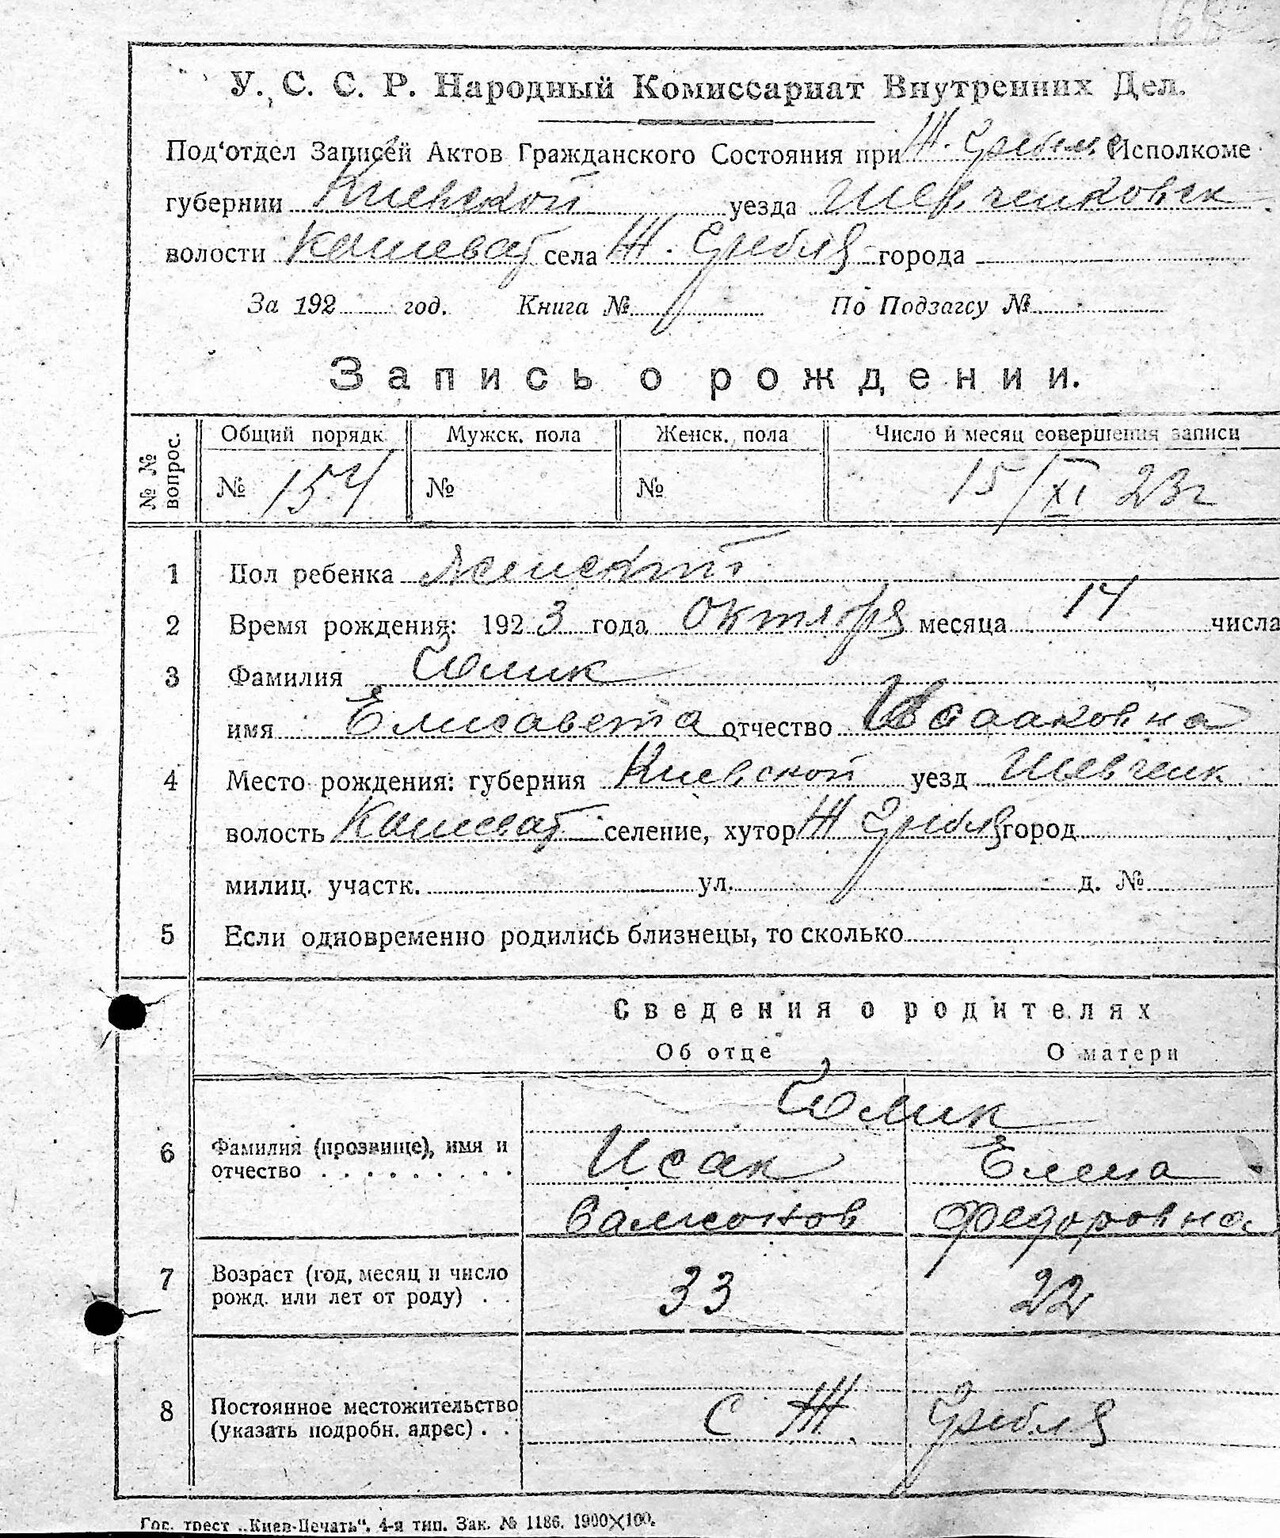 У. С. С. Р. Народный Комиссариат Внутренних Дел.
Под'отдел Записей Актов Гражданского Состояния при Ж. Гребел. Исполкоме
губернии Киевской уезда Шевченковск
волости Кошеват села Ж. Гребля города
За 192 год. Книга № По Подзагсу №
Запись о рождении.
№ № вопрос. Общий порядк. Мужск. пола Женск. пола Число и месяц совершения записи
№ 154 № № 15/XI 23г
1 Пол ребенка Женский
2 Время рождения: 1923 года Октября месяца 14 числа
3 Фамилия
имя Елисавета отчество Исааковна
4 Место рождения: губерния Киевской уезд Шевченк
волость Кошеват селение, хутор Ж Гребля город
милиц. участк. ул. д. №
5 Если одновременно родились близнецы, то сколько
Сведения о родителях
Об отце О матери
6 Фамилия (прозвище), имя и отчество
Исак Елена
Федоровна
7 Возраст (год, месяц и число рожд. или лет от роду) 33 22
8 Постоянное местожительство (указать подробн. адрес) с Ж. Гребля
Гос. трест „Киев-Печать“. 4-я тип. Зак. № 1186. 1900×100.